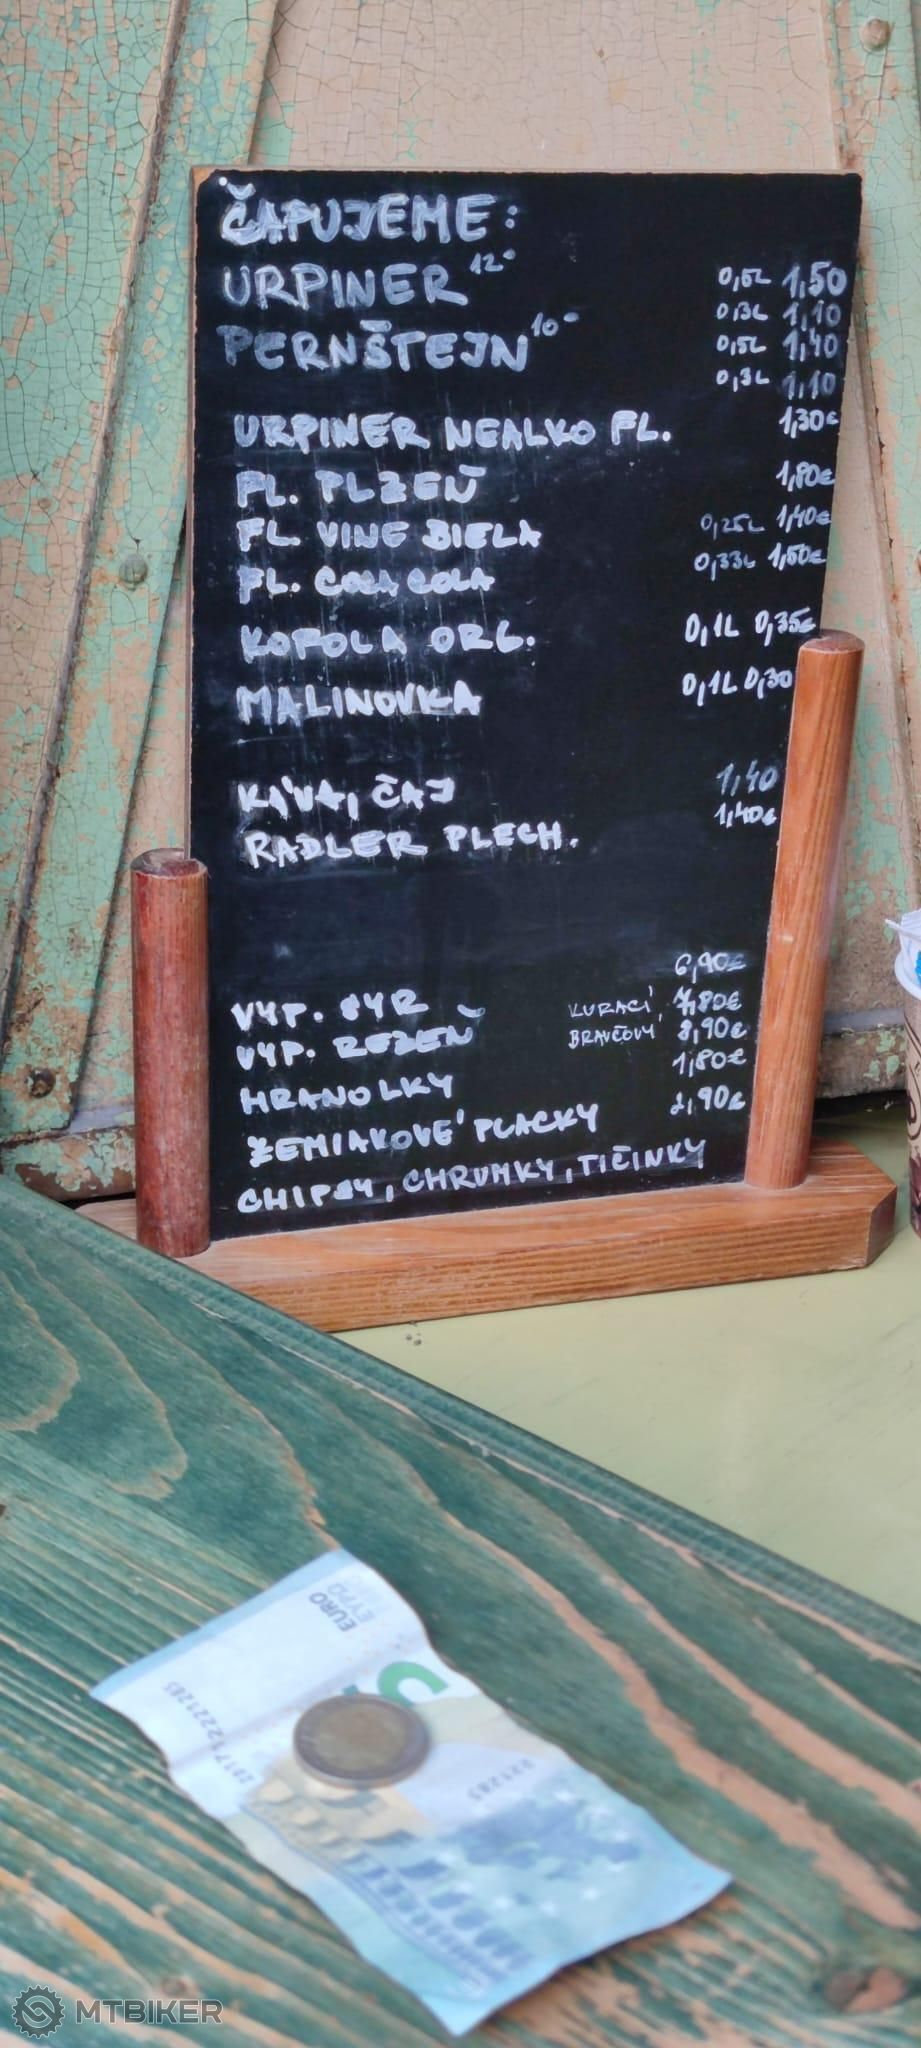 ČAPUJEME:
URPINER 12° 0,5L 1,50
0,3L 1,10
PERNŠTEJN 10° 0,5L 1,40
0,3L 1,10
URPINER NEALKO FL. 1,30€
FL. PLZEŇ 1,80€
FL. VINE BIELA 0,25L 1,40€
FL. COCA COLA 0,33L 1,50€
KOFOLA ORG. 0,1L 0,35€
MALINOVKA 0,1L 0,30
KÁVA, ČAJ 1,40
RADLER PLECH. 1,40€
VYP. SYR 6,90€
VYP. REZEŇ KURACÍ, 7,80€
BRAVČOVÝ 8,90€
HRANOLKY 1,80€
ZEMIAKOVÉ PLACKY 2,90€
CHIPSY, CHRUMKY, TIČINKY
EURO
ΕΥΡΩ
5
MTBIKER